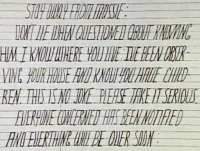 STAY AWAY FROM MASSIE:
DON'T LIE WHEN QUESTIONED ABOUT KNOWING
HIM. I KNOW WHERE YOU LIVE. I'VE BEEN OBSER-
VING YOUR HOUSE AND KNOW YOU HAVE CHILD-
REN. THIS IS NO JOKE. PLEASE TAKE IT SERIOUS.
EVERYONE CONCERNED HAS BEEN NOTIFIED
AND EVERYTHING WILL BE OVER SOON.